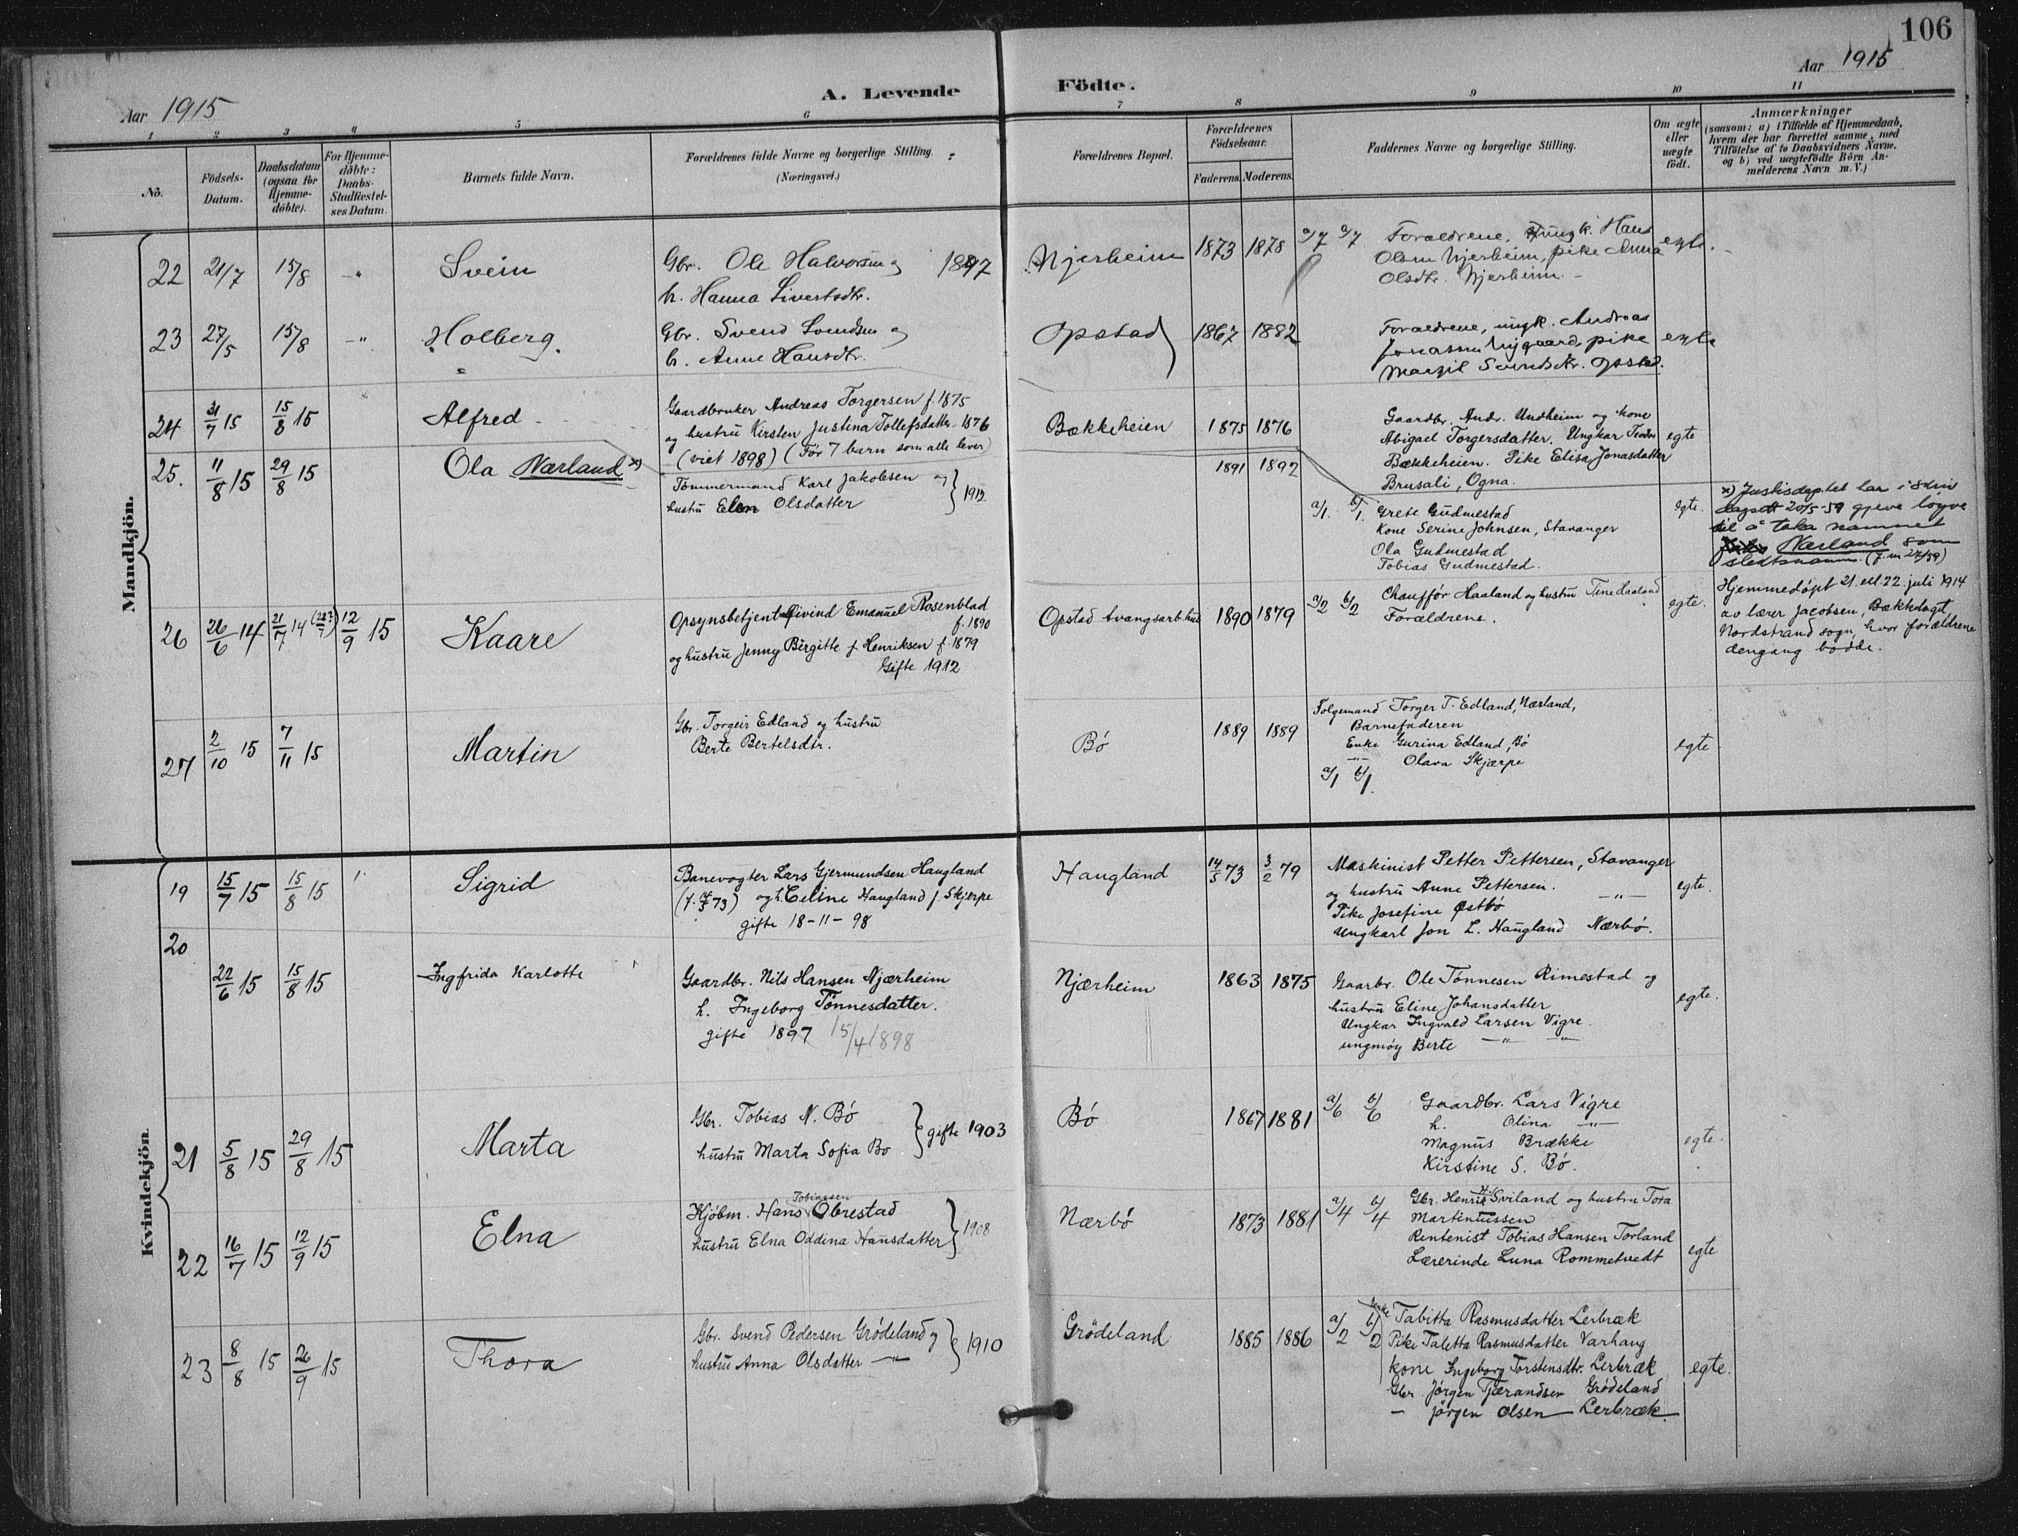 106
Aar 1915
A. Levende
Födte.
Aar 1915
1 2 3 4 5 6 7 8 9 10 11
No.
Födsels-
Datum.
Daabsdatum
(ogsaa for
Hjemme-
döbte).
For Hjemme-
döbte:
Daabs-
Stadfæstel-
ses Datum.
Barnets fulde Navn.
Forældrenes fulde Navne og borgerlige Stilling.
(Næringsvei.)
Forældrenes Bopæl.
Forældrenes
Födselsaar.
Faderens. Moderens.
Faddernes Navne og borgerlige Stilling.
Om ægte
eller
uægte
födt.
Anmærkninger
(saasom: a) i Tilfælde af Hjemmedaab,
hvem der har forrettet samme, med
Tilföielse af to Daabsvidners Navne.
og b) ved uægtefödte Börn An-
melderens Navn m. V.)
Mandkjön.
22 21/7 15/8 -"- Svein
Gbr. Ole Halvorsen og 1897
h. Hanna Sivertsdtr.
Njerheim 1873 1878 a/7 b/7
Forældrene, ungk. Hans
Olsen Njerheim, pike Anna
Olsdtr. Njerheim.
egte.
23 27/5 15/8 -"- Holberg.
Gbr. Svend Svendsen og
h. Anne Hansdtr.
Opstad 1867 1882
Forældrene, ungk. Andreas
Jonassen Nygaard, pike
Margit Svendsdtr. Opstad.
egte
24 31/7 15 15/8 15 Alfred
Gaardbruker Andreas Torgersen f. 1875
og hustru Kirsten Justina Tollefsdatter 1876
(viet 1898) (Før 7 barn som alle lever)
Bækkeheien 1875 1876
Gaardbr. And. Undheim og kone
Abigael Torgersdatter. Ungkar Teodor
Bækkeheien. Pike Elisa Jonasdatter
Brusali, Ogna.
egte
25. 11/8 15 29/8 15 Ola Nærland x)
Tømmermand Karl Jakobsen og
hustru Elen Olsdatter } 1912
1891 1892
a/1. b/1. Grete Gudmestad
Kone Serine Johnsen, Stavanger
Ola Gudmestad
Tobias Gudmestad.
egte.
x) Justisdep.tet har i skriv
dagsett 20/5-59 gjeve løyve
til å taka namnet
Nærland som
slektsnamn. (J. nr 27/59)
26 26/6 14 21/7 14 (22?/7) 12/9 15 Kaare
Opsynsbetjent Eivind Emanuel Rosenblad
f. 1890
og hustru Jenny Birgitte f. Henriksen f. 1879
Gifte 1912
Opstad tvangsarb.hus 1890 1879 a/2 b/2
Chauffør Haaland og hustru Tine Haaland
Forældrene.
egte.
Hjemmedøpt 21. ell. 22. juli 1914
av lærer Jacobsen, Bækkelaget
Nordstrand sogn, hvor forældrene
dengang bodde.
27 2/10 15 7/11 15 Martin
Gbr. Torgeir Edland og hustru
Berte Bertelsdtr.
Bö 1889 1889
Folgemand Torger T. Edland, Nærland,
Barnefaderen
Enke Gurina Edland, Bö
-"- Olava Skjærpe
a/1 b/1.
egte
Kvindekjön.
19 15/7 15 15/8 15 Sigrid
Banevogter Lars Gjermundsen Haugland
(f. 14/5 73) og h. Celine Haugland f. Skjerpe
gifte 18-11-98
Haugland 14/5 73 3/2 79
Maskinist Petter Pettersen, Stavanger
og hustru Anne Pettersen. -"-
Pike Josefine Østbö
Ungkarl Jon L. Haugland Nærbö.
egte.
20 22/6 15 15/8 15 Ingfrida Karlotte
Gaardbr. Nils Hansen Njærheim
h. Ingeborg Tönnesdatter.
gifte 1897 15/4 1898
Njærheim 1863 1875
Gaarbr. Ole Tönnesen Rimestad og
hustru Eline Johansdatter
Ungkar Ingvald Larsen Vigre.
ungmöy Berte -"- -"-
egte.
21 5/8 15 29/8 15 Marta
Gbr. Tobias N. Bö
hustru Marta Sofia Bø } gifte 1903
Bö 1867 1881 a/6 b/6
Gaardbr. Lars Vigre
h. Olina -"-
Magnus Brække
Kirstine S. Bö.
egte.
22 16/7 15 12/9 15 Elna
Kjöbm. Hans Tobiassen Obrestad
hustru Elna Oddina Hansdatter } 1908
Nærbö 1873 1881 a/4 b/4
Gbr. Henrik Sviland og hustru Tora
Martinussen
Rentenist Tobias Hansen Torland
Lærerinde Luna Rommetvedt
egte
23 8/8 15 26/9 15 Thora
Gbr. Svend Pedersen Grödeland og
hustru Anna Olsdatter -"- } 1910
Grödeland 1885 1886 a/2 b/2
Tabitta Rasmusdatter Lerbræk
Pike Taletta Rasmusdatter Varhaug
kone Ingeborg Torstensdtr. Lerbræk
Gbr. Jørgen Tjerandsen Grödeland
- Jørgen Olsen - Lerbræk.
egte.